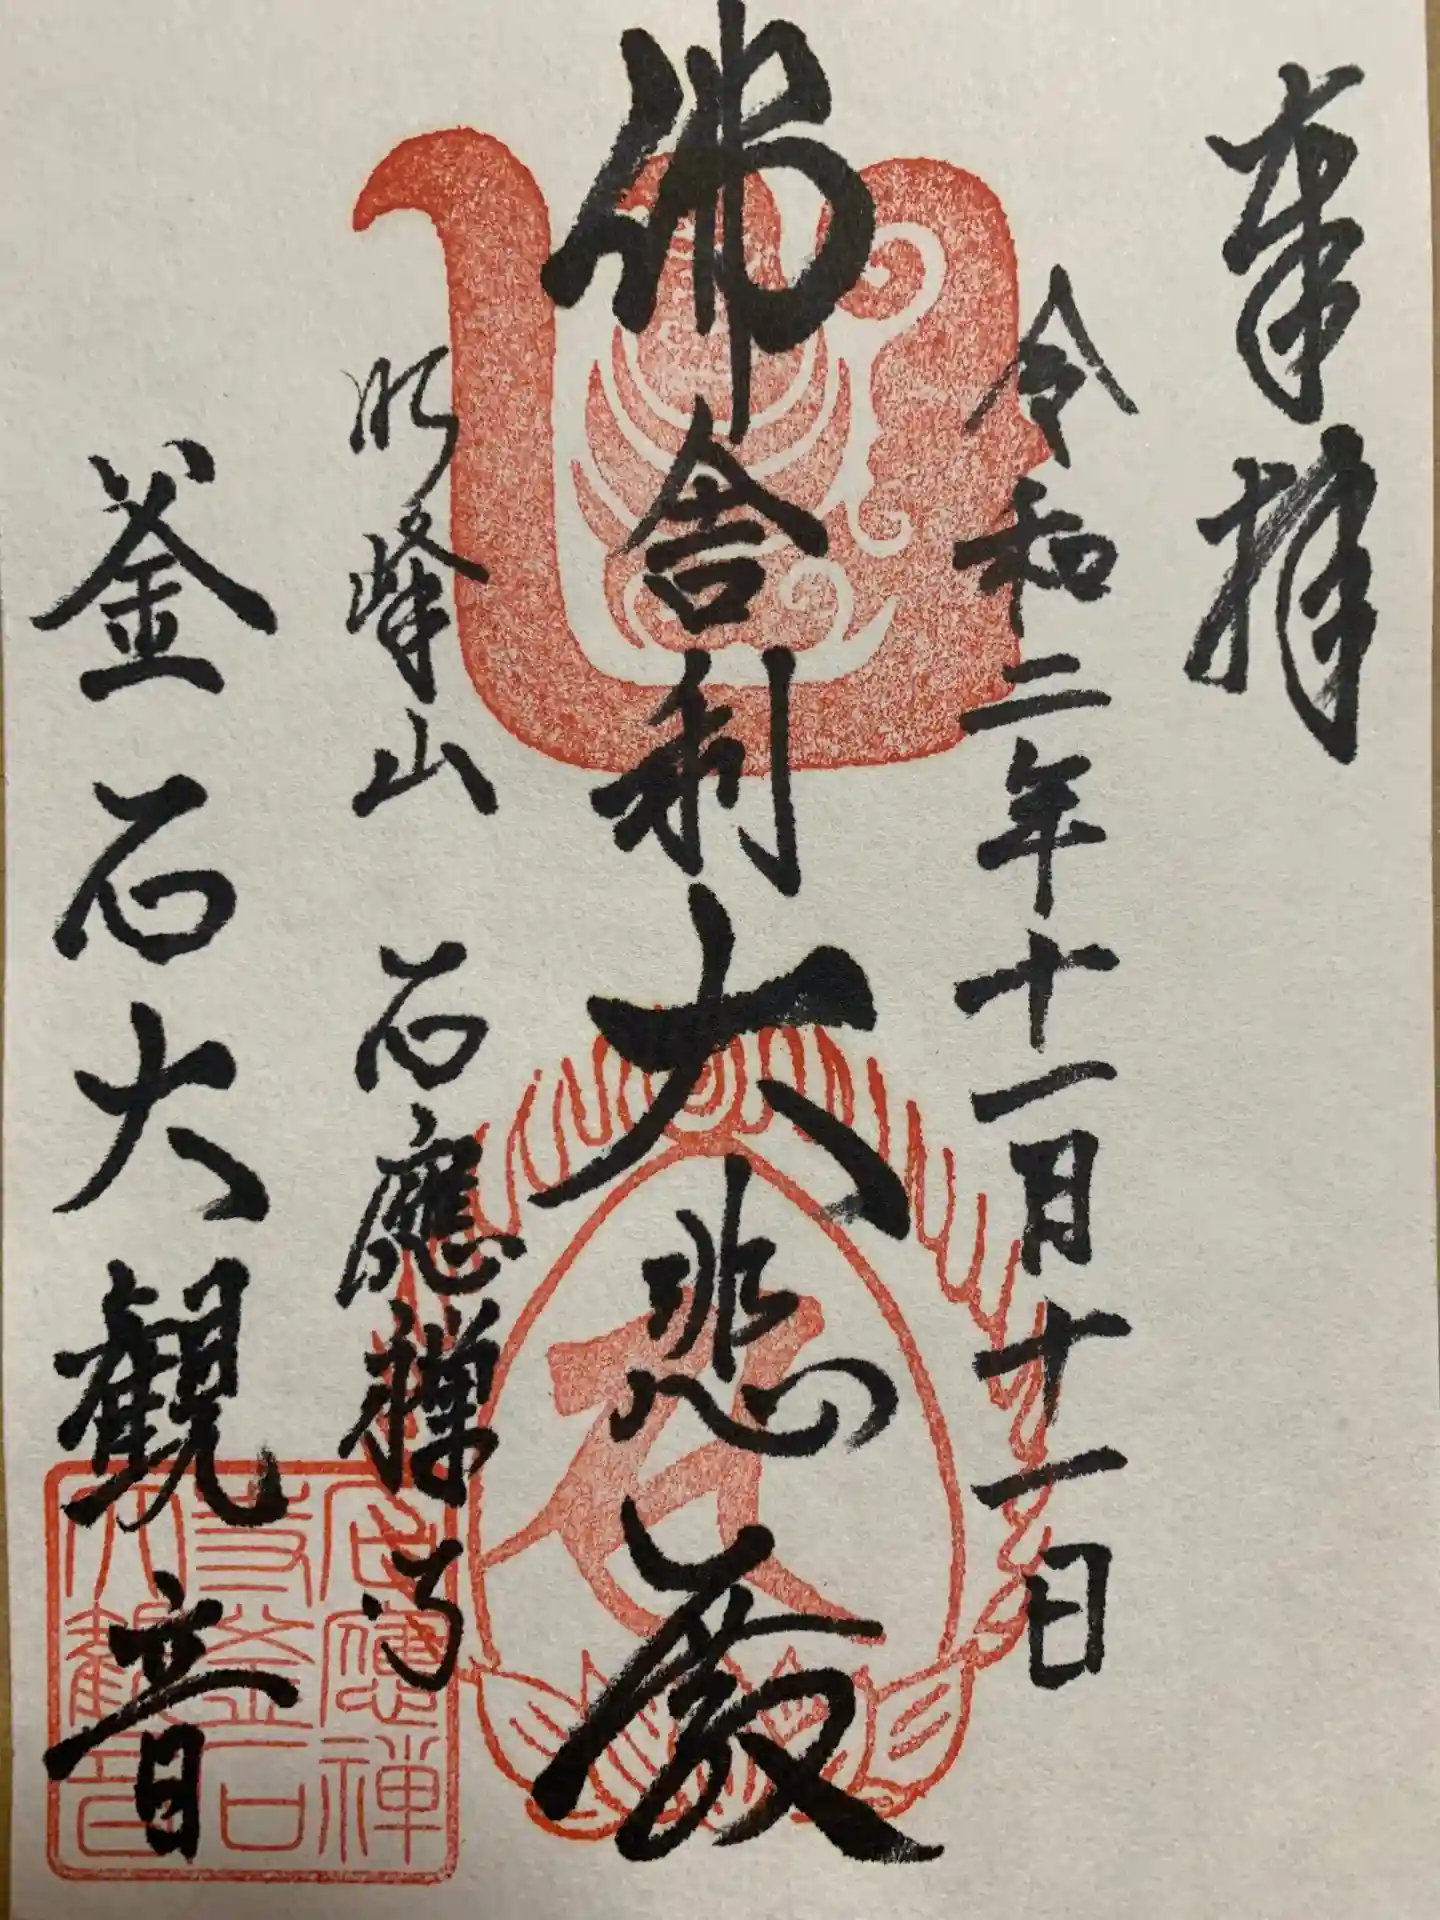 奉拝
令和二年十一月十一日
佛舎利大悲殿
明峰山 石應禅寺
釜石大観音
石應禅
寺釜石
大観音